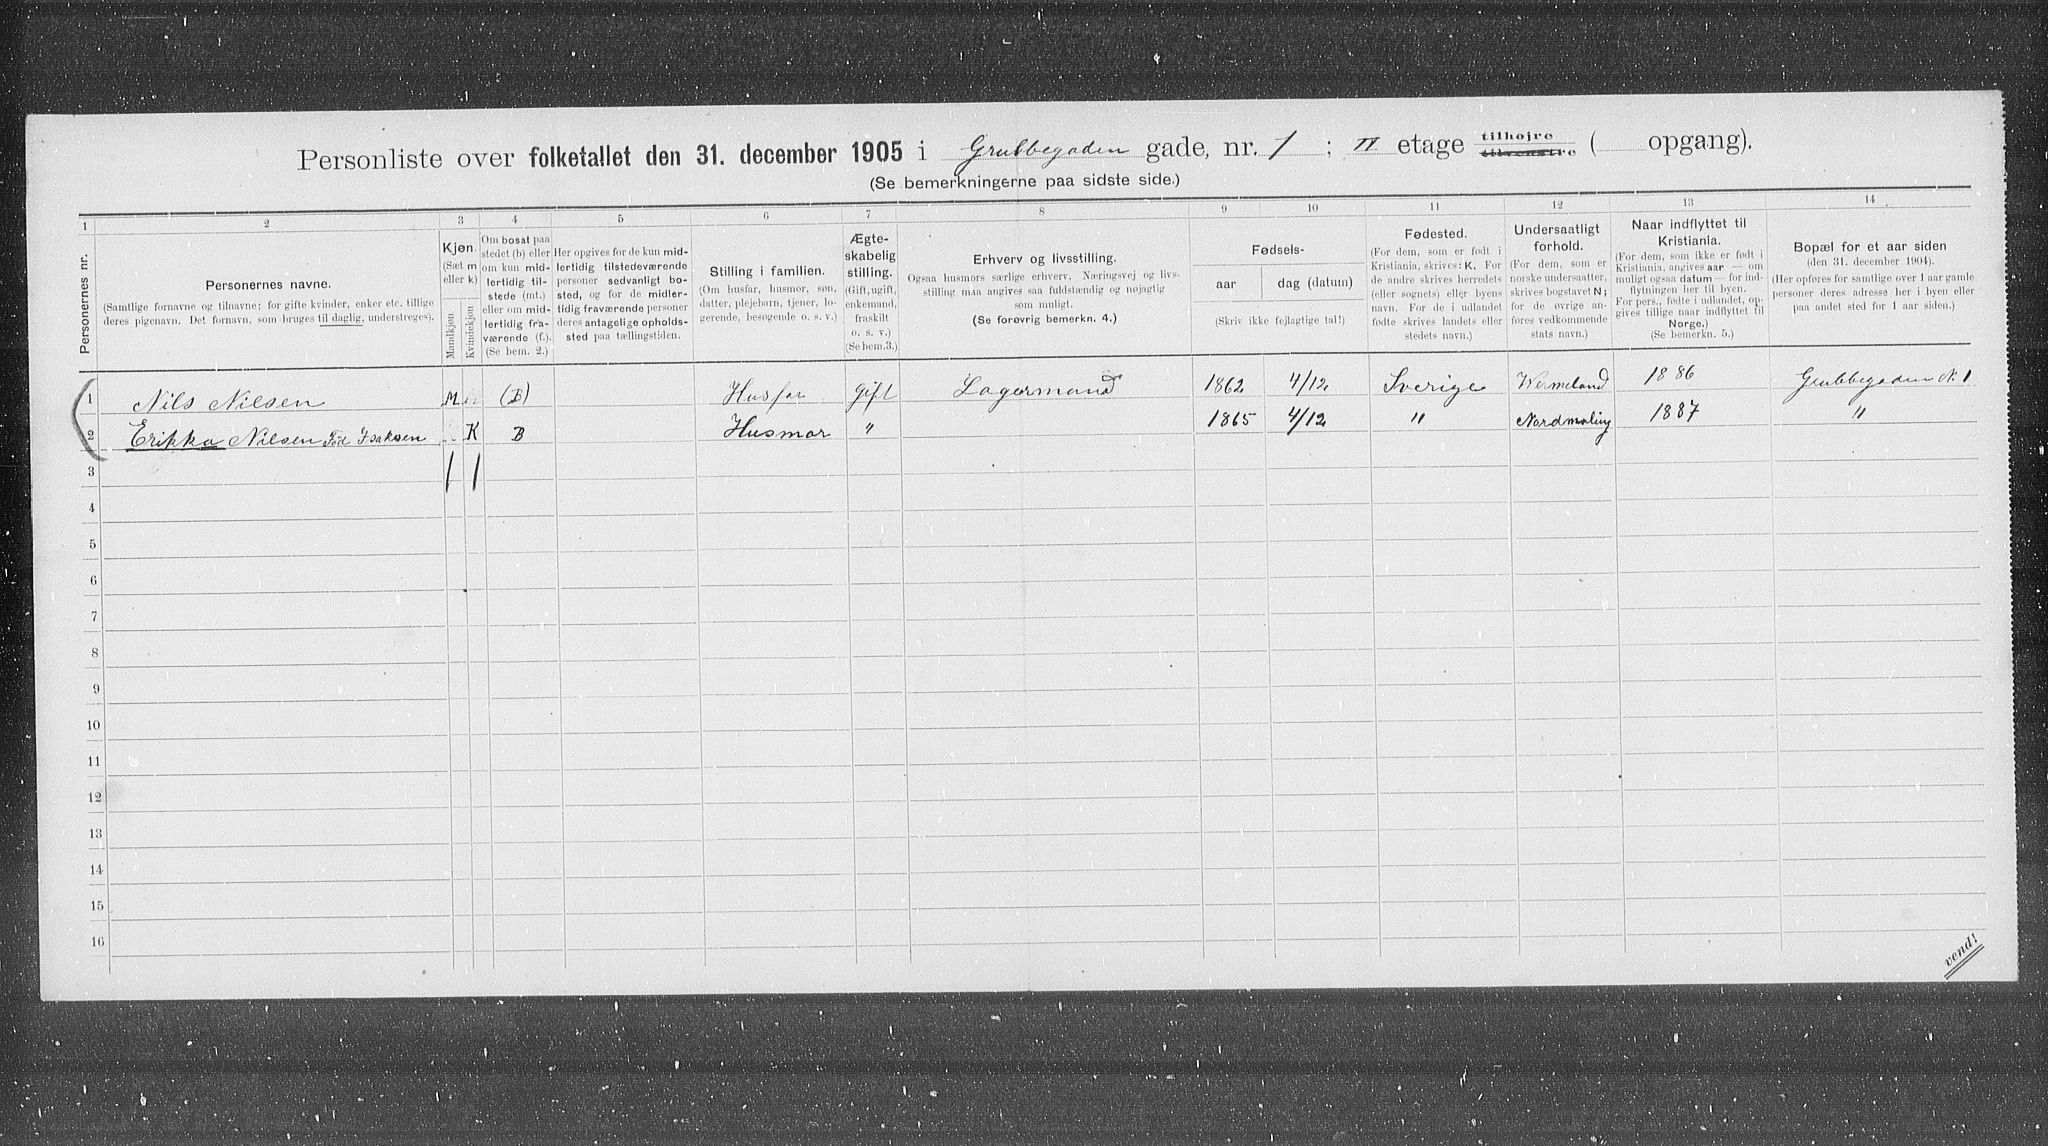 Personliste over folketallet den 31. december 1905 i Grubbegaden gade, nr. 1 ; II etage tilhøjre tilvenstre ( opgang).
(Se bemerkningerne paa sidste side.)
1 2 3 4 5 6 7 8 9 10 11 12 13 14
Personernes nr.
Personernes navne.
(Samtlige fornavne og tilnavne; for gifte kvinder, enker etc. tillige
deres pigenavn. Det fornavn, som bruges til daglig, understreges).
Kjøn.
(Sæt m
eller k)
Mandkjøn
Kvindekjøn
Om bosat paa
stedet (b) eller
om kun mid-
lertidig til-
stede (mt.)
eller om mid-
lertidig fra-
værende (f.).
(Se bem. 2.)
Her opgives for de kun mid-
lertidig tilstedeværende
personer sedvanligt bo-
sted, og for de midler-
tidig fraværende personer
deres antagelige opholds-
sted paa tællingstiden.
Stilling i familien.
(Om husfar, husmor, søn,
datter, plejebarn, tjener, lo-
gerende, besøgende o. s. v.)
Ægte-
skabelig
stilling.
(Gift, ugift,
enkemand,
fraskilt
o. s. v.)
(Se bem.3.)
Erhverv og livsstilling.
Ogsaa husmors særlige erhverv. Næringsvej og livs-
stilling maa angives saa fuldstændig og nøjagtig
som muligt.
(Se forøvrig bemerkn. 4.)
Fødsels-
aar
dag (datum)
(Skriv ikke fejlagtige tal!)
Fødested.
(For dem, som er født i
Kristiania, skrives: K. For
de andre skrives herredets
(eller sognets) eller byens
navn. For de i udlandet
fødte skrives landets eller
stedets navn.)
Undersaatligt
forhold.
(For dem, som er
norske undersaatter,
skrives bogstavet N;
for de øvrige an-
føres vedkommende
stats navn.)
Naar indflyttet til
Kristiania.
(For dem, som ikke er født i
Kristiania, angives aar — om
muligt ogsaa datum — for ind-
flytningen her til byen.
For pers., fødte i udlandet, op-
gives tillige naar indflyttet til
Norge.)
(Se bemerkn. 5.)
Bopæl for et aar siden
(den 31. december 1904).
(Her opføres for samtlige over 1 aar gamle
personer deres adresse her i byen eller
paa andet sted for 1 aar siden.)
1 Nils Nilsen M (B) Husfar Gift Lagermand 1862 4/12 Sverige Wermeland 1886 Grubbegaden N. 1
2 Erikka Nilsen Fød Isaksen K B Husmor " 1865 4/12 " Nordmaling 1887 "
3
4
5
6
7
8
9
10
11
12
13
14
15
16
vend!